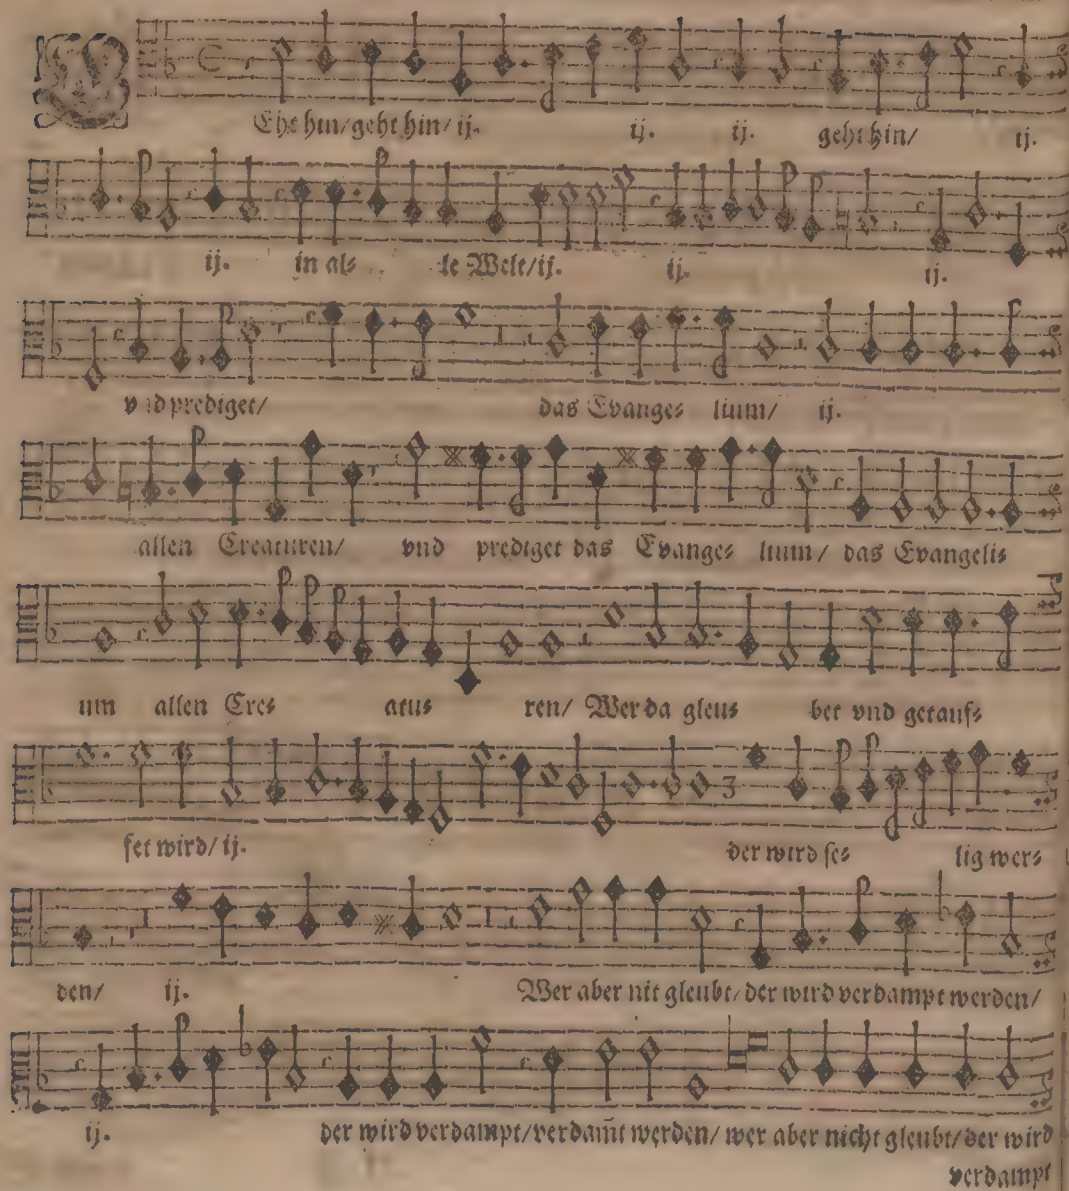 GEht hin/geht hin/ ij. ij. ij. geht hin/ ij.
ij. in als le Welt/ij. ij. ij.
vnd prediget/ das Evanges lium/ ij.
allen Creaturen/ vnd prediget das Evanges lium/ das Evangelis
um allen Cres atus ren/ Wer da gleus bet vnd getauf s
fet wird/ ij. der wird ses lig wers
den/ ij. Wer aber nit gleubt/der wird verdampt werden/
ij. der wird verdampt/verdam̄t werden/ wer aber nicht gleubt/der wird
verdampt